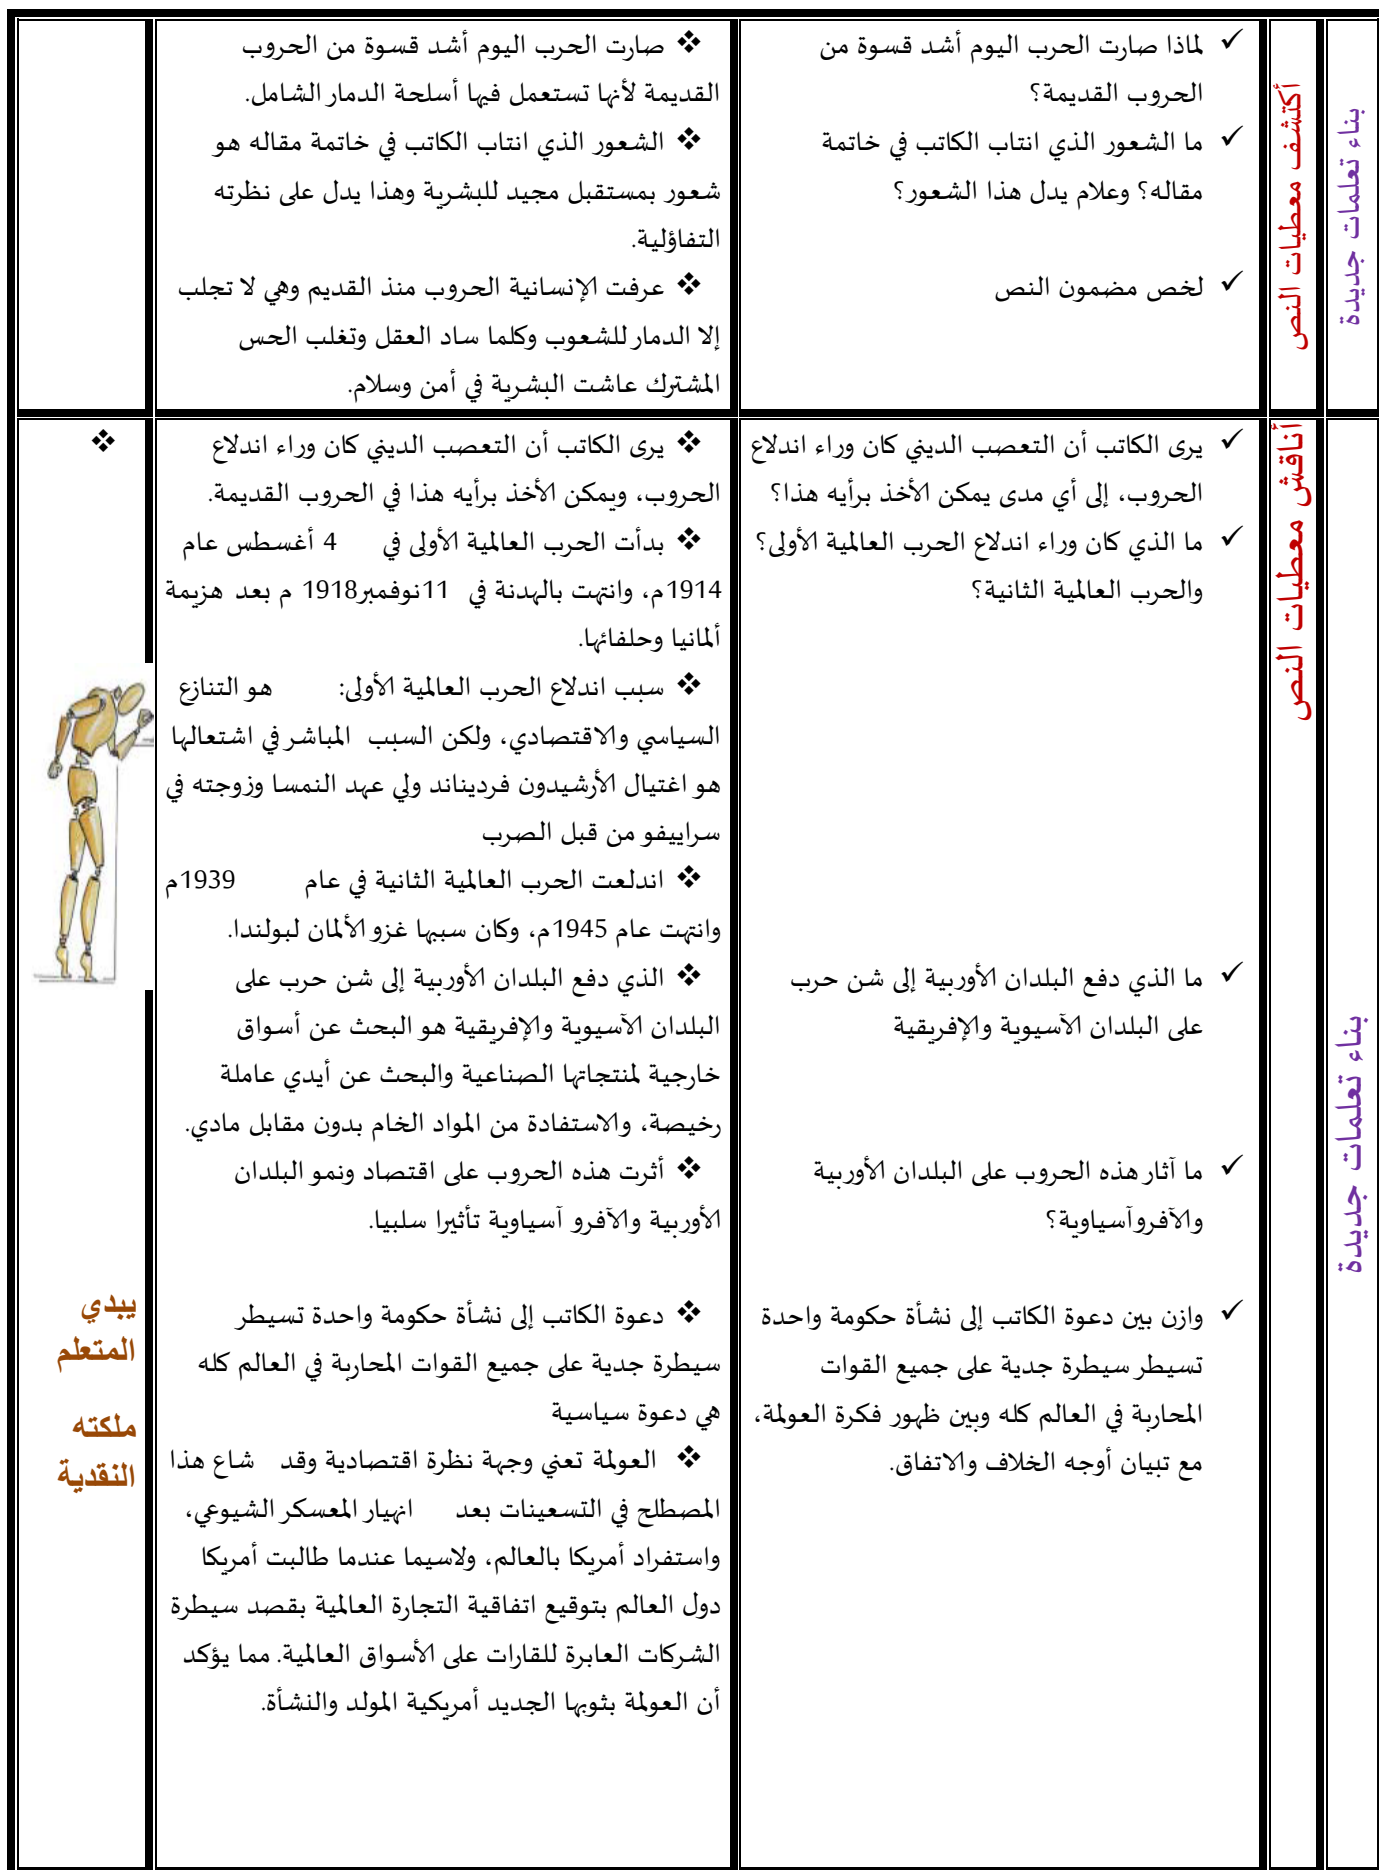 بناء تعلمات جديدة
أكتشف معطيات النص
✓ لماذا صارت الحرب اليوم أشد قسوة من
الحروب القديمة؟
✓ ما الشعور الذي انتاب الكاتب في خاتمة
مقاله؟ وعلام يدل هذا الشعور؟
✓ لخص مضمون النص
❖ صارت الحرب اليوم أشد قسوة من الحروب
القديمة لأنها تستعمل فيها أسلحة الدمار الشامل.
❖ الشعور الذي انتاب الكاتب في خاتمة مقاله هو
شعور بمستقبل مجيد للبشرية وهذا يدل على نظرته
التفاؤلية.
❖ عرفت الإنسانية الحروب منذ القديم وهي لا تجلب
إلا الدمار للشعوب وكلما ساد العقل وتغلب الحس
المشترك عاشت البشرية في أمن وسلام.
بناء تعلمات جديدة
أناقش معطيات النص
✓ يرى الكاتب أن التعصب الديني كان وراء اندلاع
الحروب، إلى أي مدى يمكن الأخذ برأيه هذا؟
✓ ما الذي كان وراء اندلاع الحرب العالمية الأولى؟
والحرب العالمية الثانية؟
✓ ما الذي دفع البلدان الأوربية إلى شن حرب
على البلدان الآسيوية والإفريقية
✓ ما آثار هذه الحروب على البلدان الأوربية
والآفروآسياوية؟
✓ وازن بين دعوة الكاتب إلى نشأة حكومة واحدة
تسيطر سيطرة جدية على جميع القوات
المحاربة في العالم كله وبين ظهور فكرة العولمة،
مع تبيان أوجه الخلاف والاتفاق.
❖ يرى الكاتب أن التعصب الديني كان وراء اندلاع
الحروب، ويمكن الأخذ برأيه هذا في الحروب القديمة.
❖ بدأت الحرب العالمية الأولى في 4 أغسطس عام
1914م، وانتهت بالهدنة في 11نوفمبر1918 م بعد هزيمة
ألمانيا وحلفائها.
❖ سبب اندلاع الحرب العالمية الأولى: هو التنازع
السياسي والاقتصادي، ولكن السبب المباشر في اشتعالها
هو اغتيال الأرشيدون فرديناند ولي عهد النمسا وزوجته في
سراييفو من قبل الصرب
❖ اندلعت الحرب العالمية الثانية في عام 1939م
وانتهت عام 1945م، وكان سببها غزو الألمان لبولندا.
❖ الذي دفع البلدان الأوربية إلى شن حرب على
البلدان الآسيوية والإفريقية هو البحث عن أسواق
خارجية لمنتجاتها الصناعية والبحث عن أيدي عاملة
رخيصة، والاستفادة من المواد الخام بدون مقابل مادي.
❖ أثرت هذه الحروب على اقتصاد ونمو البلدان
الأوربية والآفرو آسياوية تأثيرا سلبيا.
❖ دعوة الكاتب إلى نشأة حكومة واحدة تسيطر
سيطرة جدية على جميع القوات المحاربة في العالم كله
هي دعوة سياسية
❖ العولمة تعني وجهة نظرة اقتصادية وقد شاع هذا
المصطلح في التسعينات بعد انهيار المعسكر الشيوعي،
واستفراد أمريكا بالعالم، ولاسيما عندما طالبت أمريكا
دول العالم بتوقيع اتفاقية التجارة العالمية بقصد سيطرة
الشركات العابرة للقارات على الأسواق العالمية. مما يؤكد
أن العولمة بثوبها الجديد أمريكية المولد والنشأة.
❖
يبدي
المتعلم
ملكته
النقدية